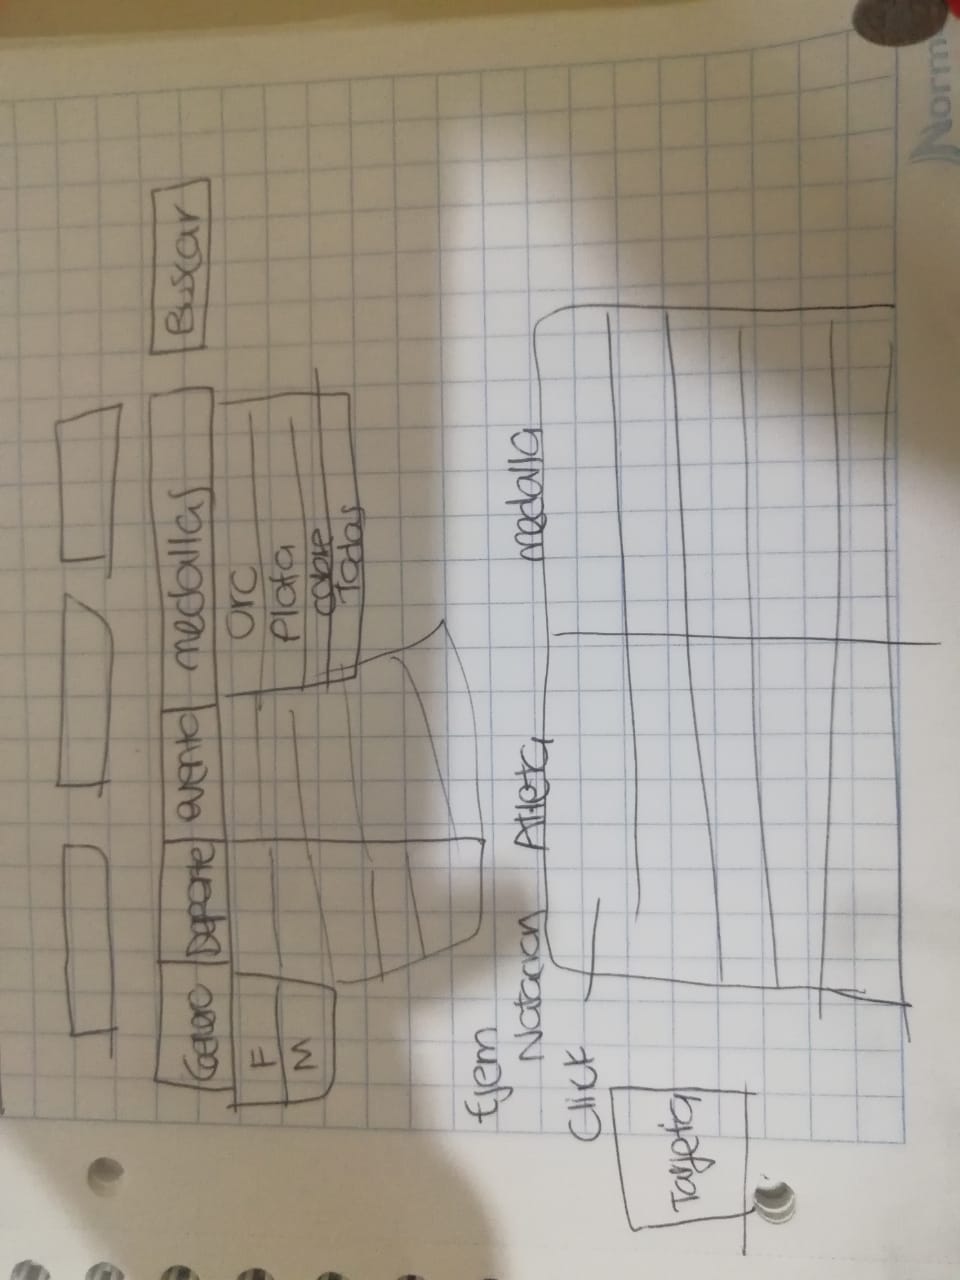 Buscar
Genero Deporte evento medallas
F
M
oro
Plata
cobre
Todas
Ejem
Natacion Atleta medalla
Click
Tarjeta
Norm